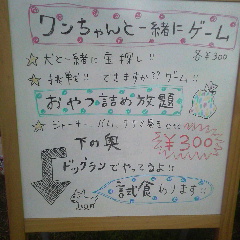 ワンちゃんと一緒にゲーム
各¥300
☆犬と一緒に宝探し!!
☆挑戦!! できますか?? ゲーム!!
おやつ詰め放題
☆ジャーキー
¥300
下の奥
ドッグランでやってるよ!!
試食あります!!